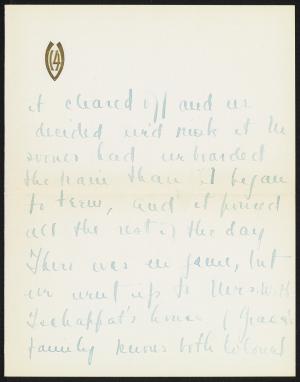 it cleared off and we
decided we'd risk it. No
sooner had we boarded
the train than it began
to teem, and it poured
all the rest of the day
There was no game, but
we went up to Mrs.
house (Grace's
family knows both Colonel